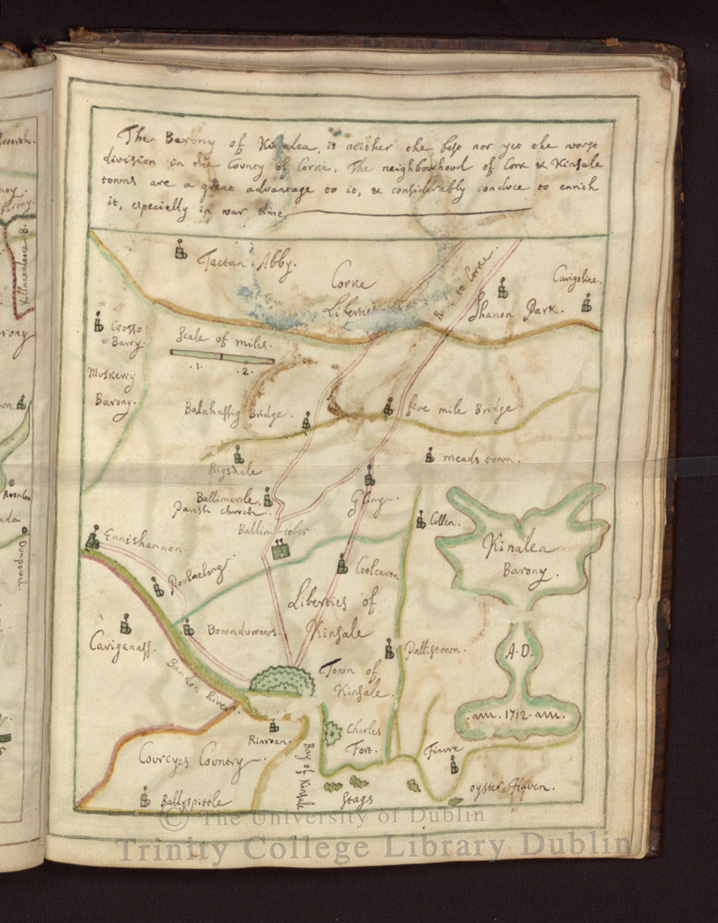 The Barony of Kinalea, is neither the best nor yet the worse
division in the County of Corke, The neighbourhood of Cork & Kinsale
towns are a great advantage to it, & considerably conduce to enrich
it, especially in war time
Tactan Abby.
Corke
Liberties
Road to Corke.
Shanon Park.
Carigoline.
Cross=
=Barry.
Scale of miles.
.1. .2.
Muskerry
Barony.
Balnhassig Bridge.
five mile Bridge
Rigsdale
meads town.
Ballimartle
Parish church.
Glinny
Cullen.
Ballintober
Kinalea
Barony.
Ennishannon.
Coolcaron
Liberties of
Kinsale
Carigenass.
Bowndurrows.
Pallistown.
A.D.
Bandon River.
Town of
Kinsale.
.1712.
Rinroan.
Charles
Fort.
Bay of Kinsale
Courcyes Country
Finure
Ballyspittle
Stags
oyster Haven.
Killnamallone B.
© The University of Dublin
Trinity College Library Dublin